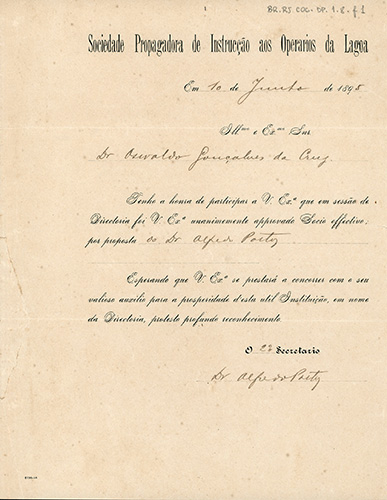 BR.RJ.COC.OP.1.8.f.1
Sociedade Propagadora de Instrucção aos Operarios da Lagoa
Em 10 de Junho de 1895
Illmo e Exmo Snr
Dr Oswaldo Gonçalves da Cruz
Tenho a honra de participar a V. Exa que em sessão de
Directoria foi V. Exa unanimemente approvado Socio effectivo,
por proposta do Dr Alfredo Porto
Esperando que V. Exa se prestará a concorrer com o seu
valioso auxilio para a prosperidade d'esta util Instituição, em nome
da Directoria, protesto profundo reconhecimento.
O 2º Secretario
Dr Alfredo Porto